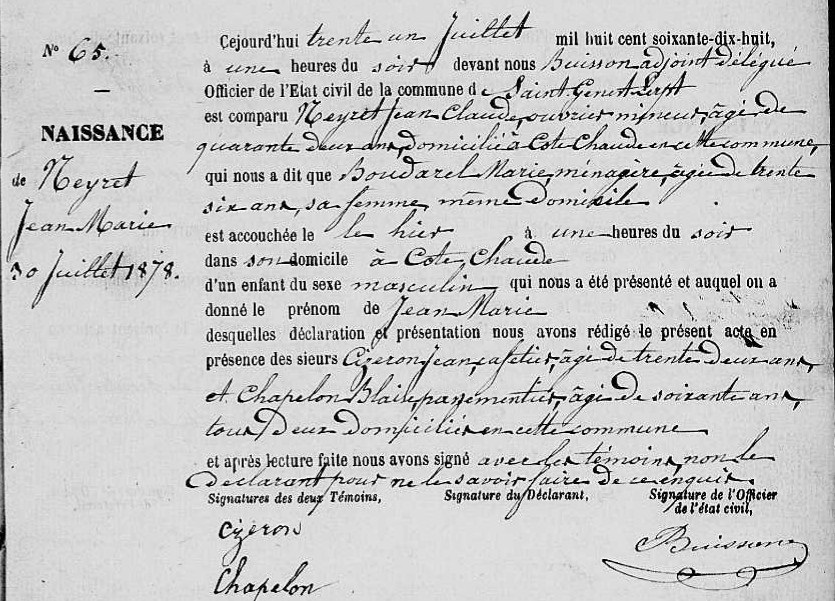 N° 65.
NAISSANCE
de Neyret
Jean Marie
30 Juillet 1878.
Cejourd'hui trente un Juillet mil huit cent soixante-dix-huit,
à une heures du soir devant nous Buisson adjoint délégué
Officier de l'Etat civil de la commune de Saint Genest Lerpt
est comparu Neyret Jean Claude, ouvrier mineur, âgé de
quarante deux ans, domicilié à Cote Chaude en cette commune,
qui nous a dit que Boudarel Marie, ménagère, âgée de trente
six ans, sa femme, même domicile
est accouchée le le hier à une heures du soir
dans son domicile à Cote Chaude
d'un enfant du sexe masculin qui nous a été présenté et auquel on a
donné le prénom de Jean Marie
desquelles déclaration et présentation nous avons rédigé le présent acte en
présence des sieurs Cizeron Jean, cafetier, âgé de trente deux ans,
et Chapelon Blaise, passementier, âgé de soixante ans,
tous deux domiciliés en cette commune
et après lecture faite nous avons signé avec les témoins, non le
déclarant pour ne le savoir faire de ce enquis.
Signatures des deux Témoins, Signature du Déclarant, Signature de l'Officier
de l'état civil,
Cizeron
Buisson
Chapelon